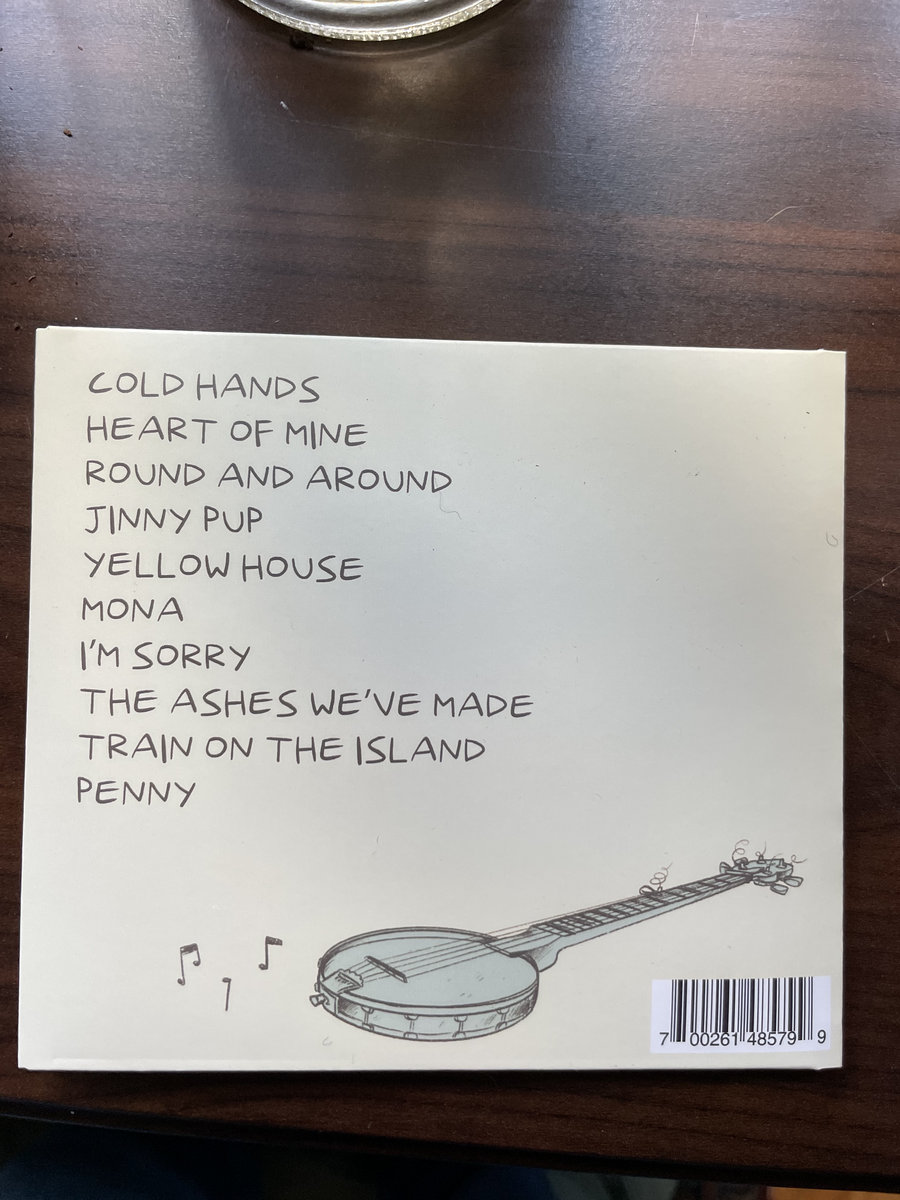 COLD HANDS
HEART OF MINE
ROUND AND AROUND
JINNY PUP
YELLOW HOUSE
MONA
I'M SORRY
THE ASHES WE'VE MADE
TRAIN ON THE ISLAND
PENNY
7 00261 48579 9